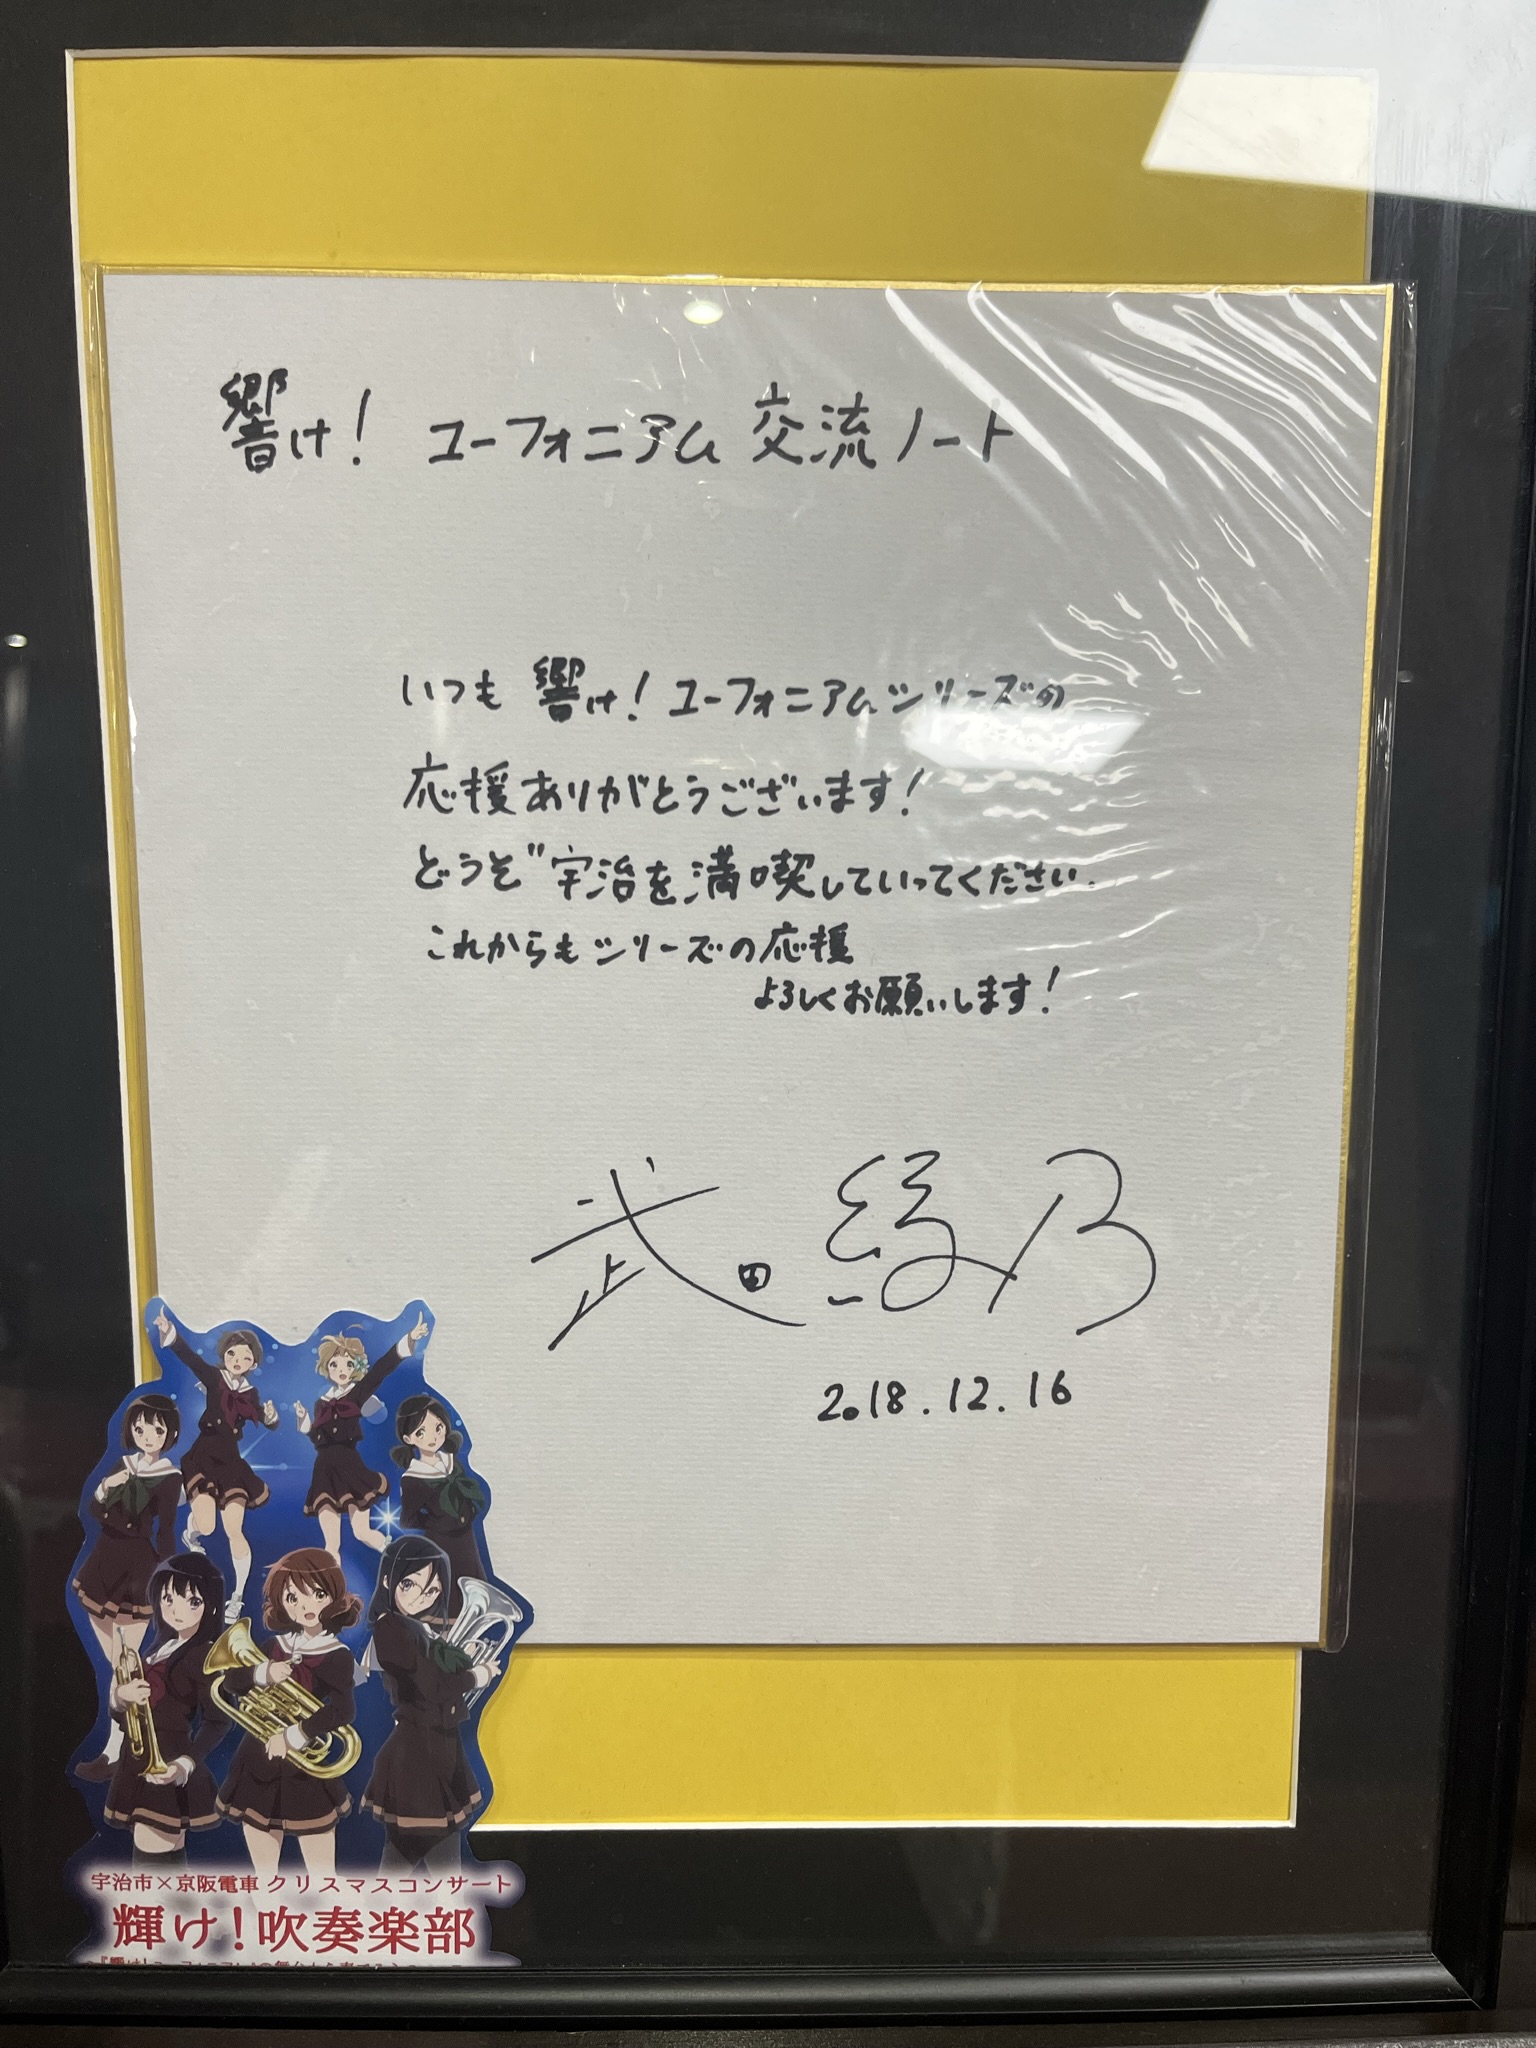 響け！ ユーフォニアム 交流ノート
いつも 響け！ ユーフォニアムシリーズの
応援ありがとうございます！
どうぞ宇治を満喫していってください．
これからもシリーズの応援
よろしくお願いします！
武田綾乃
2018.12.16
宇治市×京阪電車 クリスマスコンサート
輝け！吹奏楽部